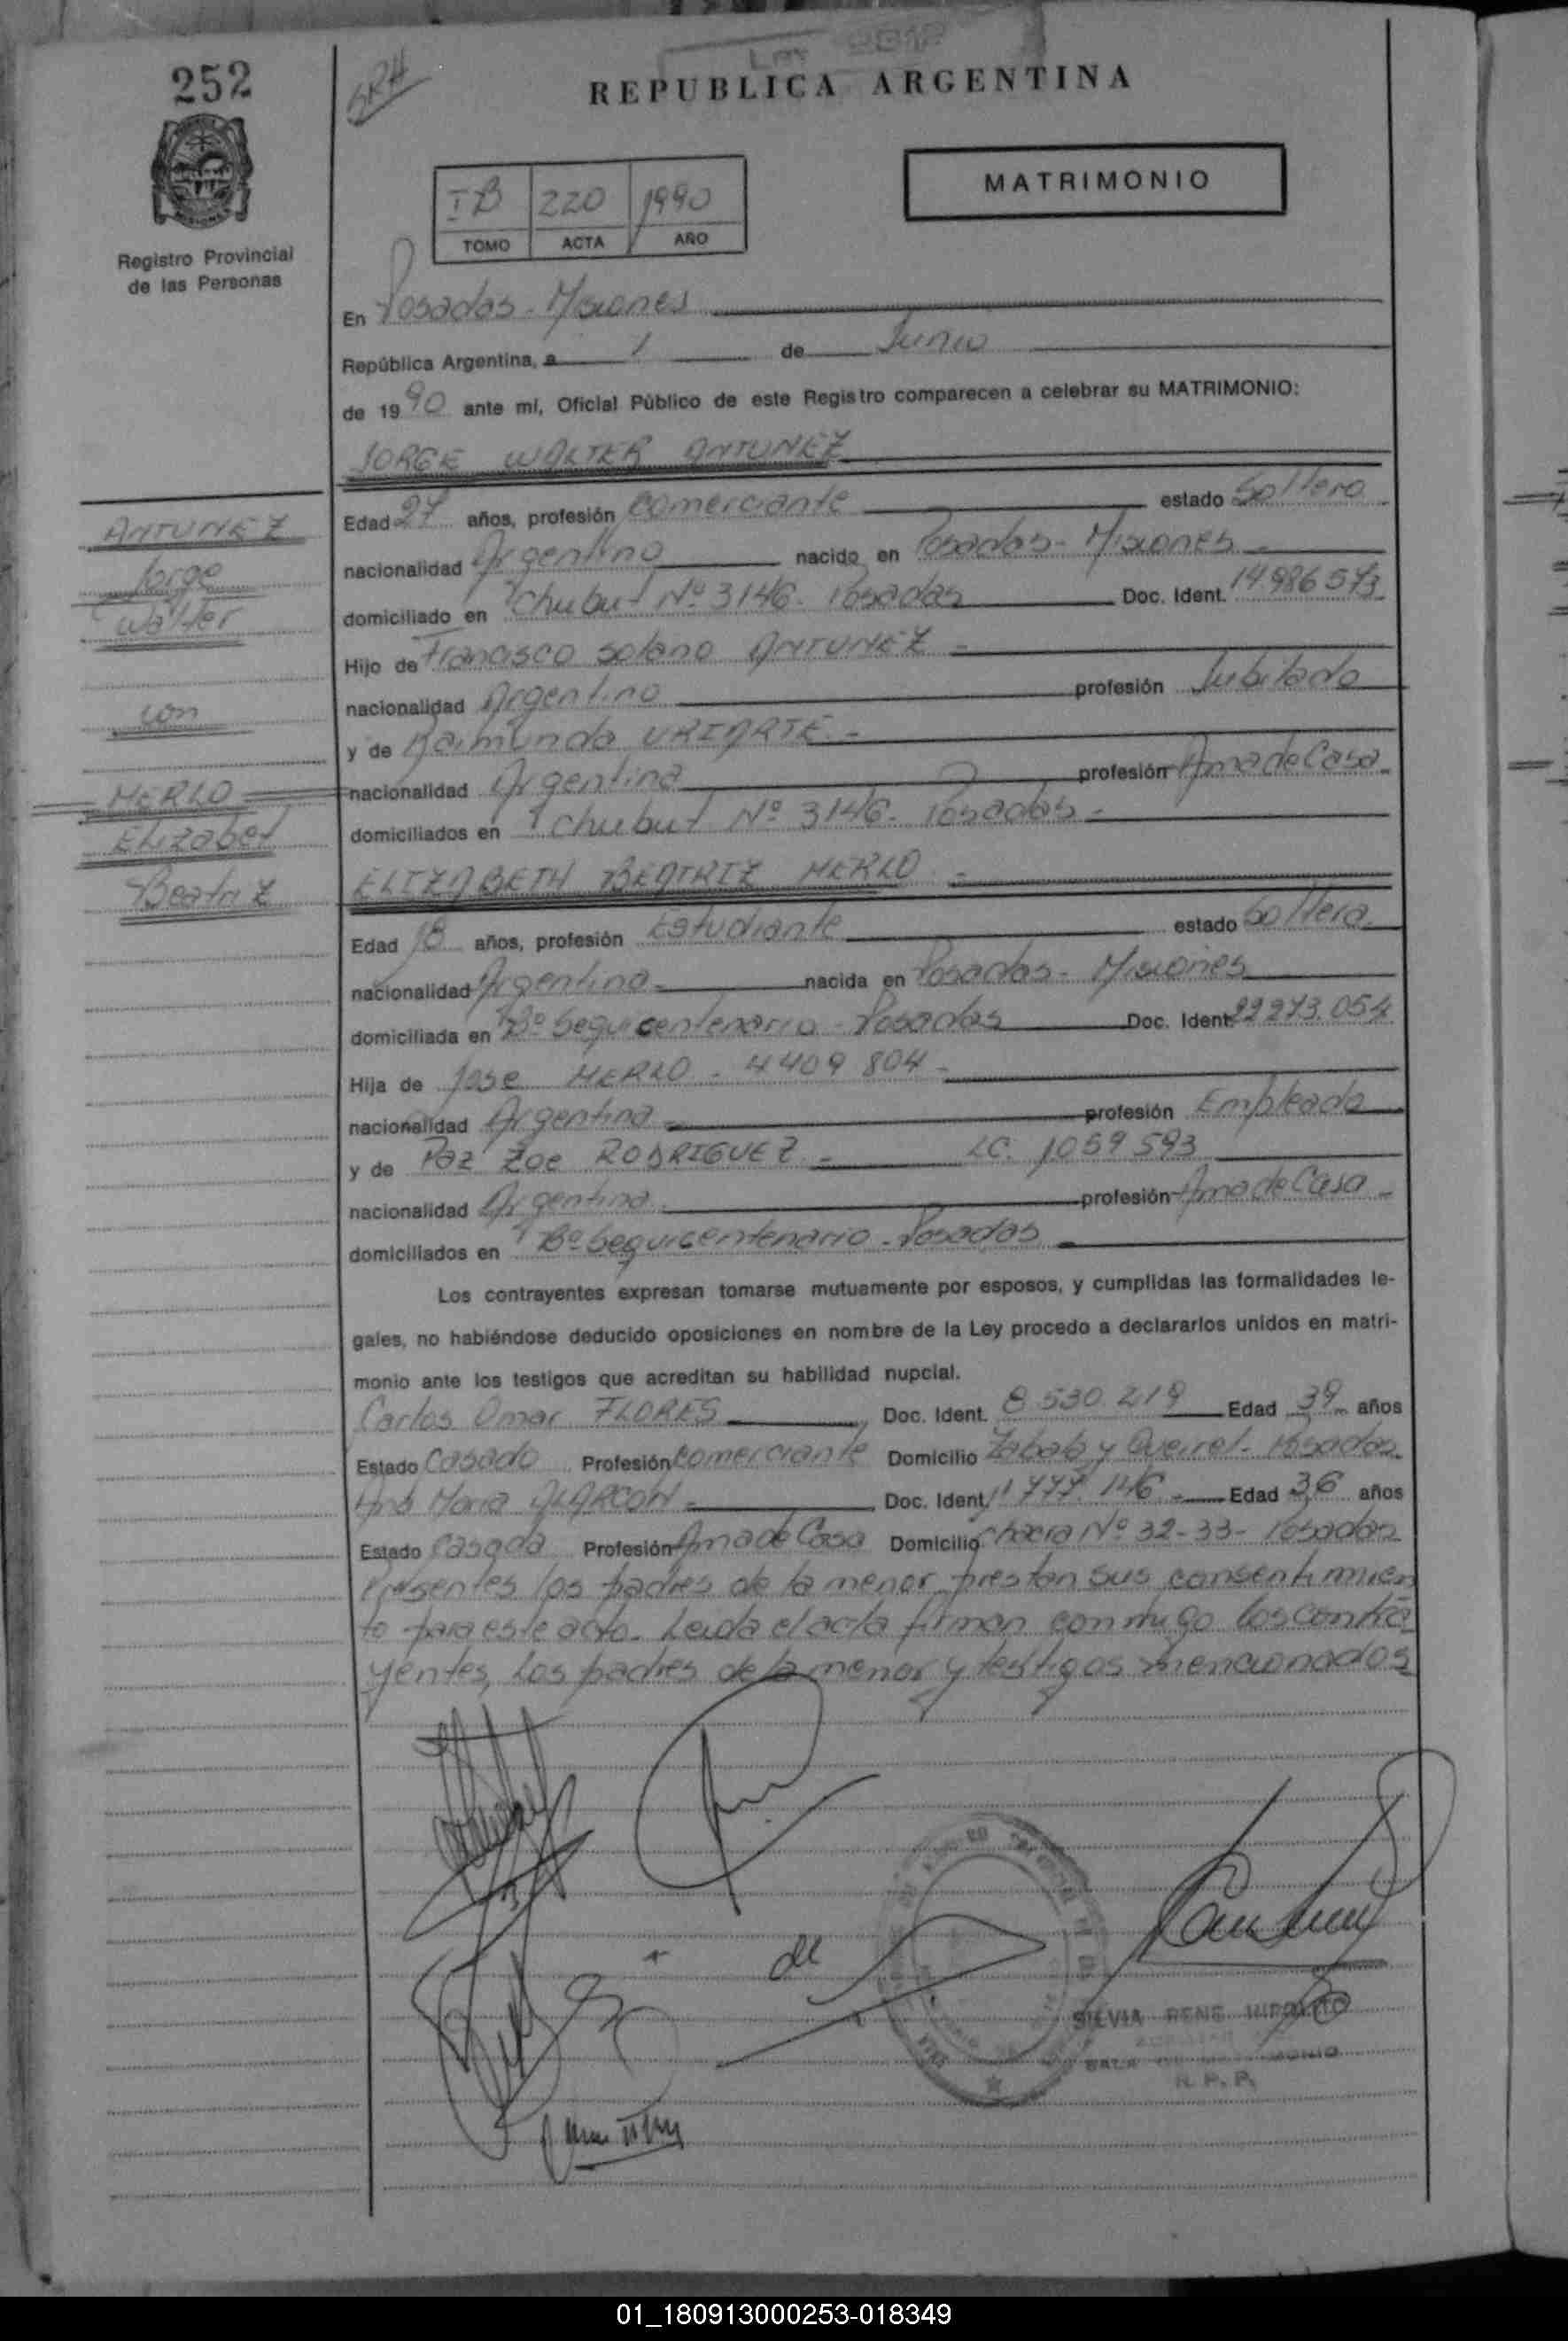 252
REPUBLICA ARGENTINA
MATRIMONIO
220 1990
TOMO ACTA AÑO
Registro Provincial
de las Personas
En Posadas - Misiones
República Argentina, a 1 de Junio
de 1990 ante mí, Oficial Público de este Registro comparecen a celebrar su MATRIMONIO:
JORGE WALTER ANTUNEZ
ANTUNEZ
Jorge
Walter
con
MERLO
Elizabet
Beatriz
Edad 27 años, profesión Comerciante estado Soltero
nacionalidad Argentino nacido en Posadas - Misiones -
domiciliado en Chubut Nº 3146. Posadas Doc. Ident. 14.986.573
Hijo de Francisco Solano ANTUNEZ -
nacionalidad Argentino profesión Jubilado
y de Raimunda URIARTE. -
nacionalidad Argentina profesión Ama de Casa
domiciliados en Chubut Nº 3146. Posadas -
ELIZABETH BEATRIZ MERLO -
Edad 18 años, profesión Estudiante estado Soltera.
nacionalidad Argentina - nacida en Posadas - Misiones
domiciliada en Bº Sequicentenario - Posadas Doc. Ident. 22.273.054
Hija de Jose MERLO - 4409 804 -
nacionalidad Argentina - profesión Empleado
y de Paz Zoe RODRIGUEZ - LC. 1059593
nacionalidad Argentina profesión Ama de Casa -
domiciliados en Bº Sequicentenario - Posadas
Los contrayentes expresan tomarse mutuamente por esposos, y cumplidas las formalidades le-
gales, no habiéndose deducido oposiciones en nombre de la Ley procedo a declararlos unidos en matri-
monio ante los testigos que acreditan su habilidad nupcial.
Carlos Omar FLORES Doc. Ident. 8.530.219 Edad 39 años
Estado Casado Profesión Comerciante Domicilio Zabala y Queirel - Posadas
Ana Maria ALARCON - Doc. Ident. 11777.146 - Edad 36 años
Estado Casada Profesión Ama de Casa Domicilio Chacra Nº 32-33- Posadas
Presentes los padres de la menor prestan sus consentimien
to para este acto. Leida el acta firman conmigo los contra
yentes, los padres de la menor y testigos mencionados
SILVIA RENE HIPOLITO
R. P. P.
01_180913000253-018349